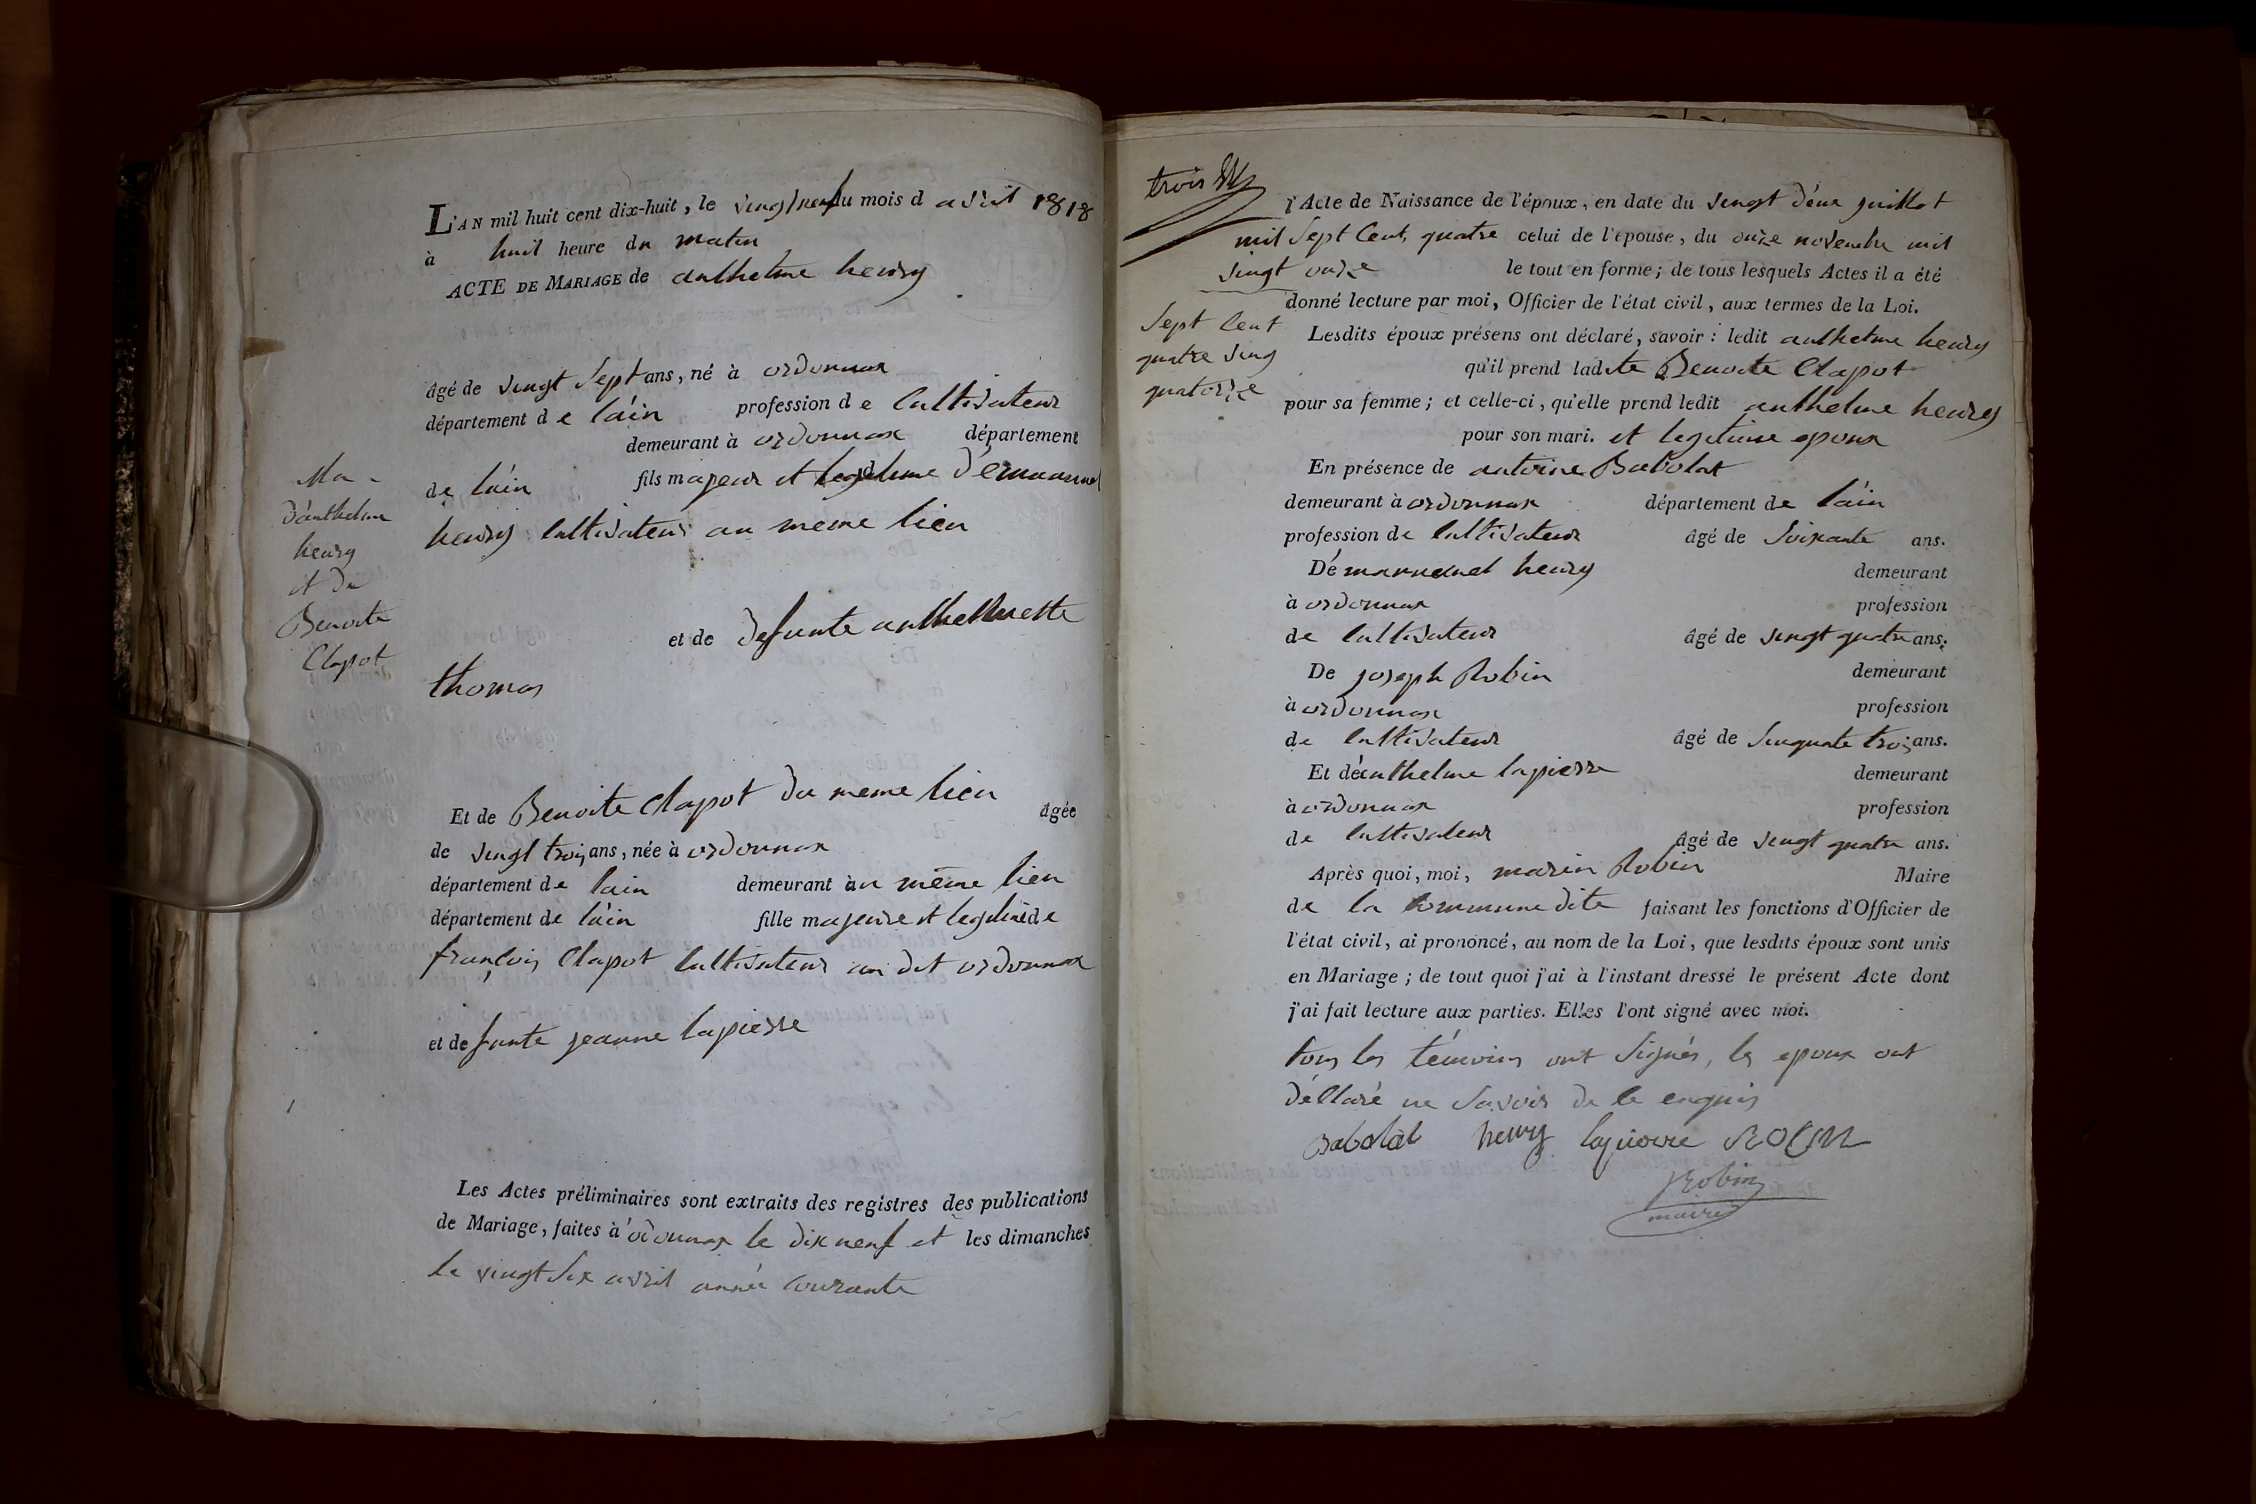 L'AN mil huit cent dix-huit, le vingt neuf du mois d avril 1818
à huit heure du matin
ACTE DE MARIAGE de anthelme henry
âgé de vingt sept ans, né à ordonnax
département de l'ain profession de cultivateur
demeurant à ordonnax département
de l'ain fils majeur et legitime d'emannuel
henry cultivateur au meme lieu
et de defunte anthelmette
thomas
Et de Benoite Clapot du meme lieu âgée
de vingt trois ans, née à ordonnax
département de lain demeurant au même lieu
département de l'ain fille majeure et legitime de
françois Clapot cultivateur au dit ordonnax
et defunte jeanne lapierre
Les Actes préliminaires sont extraits des registres des publications
de Mariage, faites à ordonnax le dix neuf et les dimanches
le vingt six avril année courante
Ma-
d'anthelme
henry
et de
Benoite
Clapot
trois
l'Acte de Naissance de l'époux, en date du vingt d'eux juillet
mil sept Cent, quatre celui de l'épouse, du onze novembre mil
vingt onze le tout en forme; de tous lesquels Actes il a été
donné lecture par moi, Officier de l'état civil, aux termes de la Loi.
sept Cent
quatre ving
quatorze
Lesdits époux présens ont déclaré, savoir: ledit anthelme henry
qu'il prend ladite Benoite Clapot
pour sa femme; et celle-ci, qu'elle prend ledit anthelme henry
pour son mari. et legitime epoux
En présence de antoine Babolat
demeurant à ordonnax département de l'ain
profession de cultivateur âgé de soixante ans.
D'émannuel henry demeurant
à ordonnax profession
de cultivateur âgé de vingt quatre ans.
De joseph Robin demeurant
à ordonnax profession
de cultivateur âgé de sinquante trois ans.
Et d'anthelme lapierre demeurant
à ordonnax profession
de cultivateur âgé de vingt quatre ans.
Après quoi, moi, marin Robin Maire
de la commune dite faisant les fonctions d'Officier de
l'état civil, ai prononcé, au nom de la Loi, que lesdits époux sont unis
en Mariage; de tout quoi j'ai à l'instant dressé le présent Acte dont
j'ai fait lecture aux parties. Elles l'ont signé avec moi.
tous les témoins ont signés, les epoux ont
déllaré ne savoir de le enquis
Babolat henry lapierre ROBIN
Robin
maire